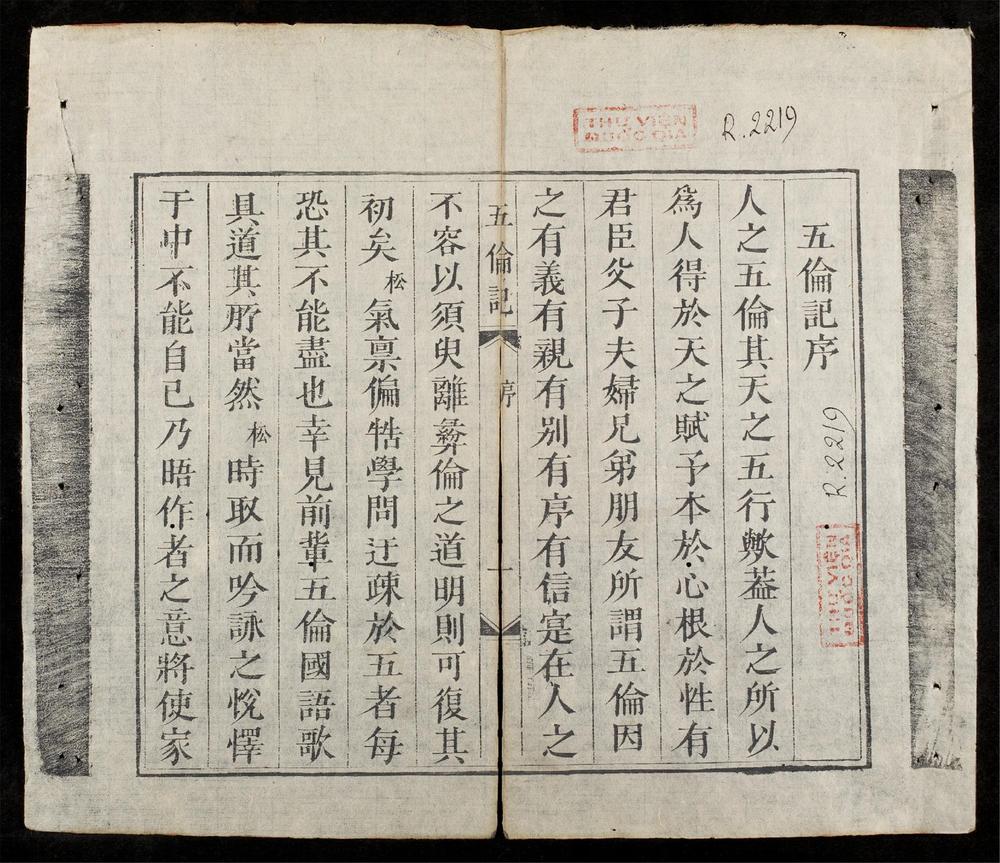 THƯ VIỆN
QUỐC GIA
R.2219
五倫記序
R.2219
THƯ VIỆN
QUỐC GIA
人之五倫其天之五行歟葢人之所以
爲人得於天之賦予本於心根於性有
君臣父子夫婦兄弟朋友所謂五倫因
之有義有親有别有序有信寔在人之
五倫記
序
一
不容以須臾離彛倫之道明則可復其
初矣松氣禀偏牿學問迂疎於五者每
恐其不能盡也幸見前輩五倫國語歌
具道其所當然松時取而吟詠之悅懌
于中不能自已乃晤作者之意將使家